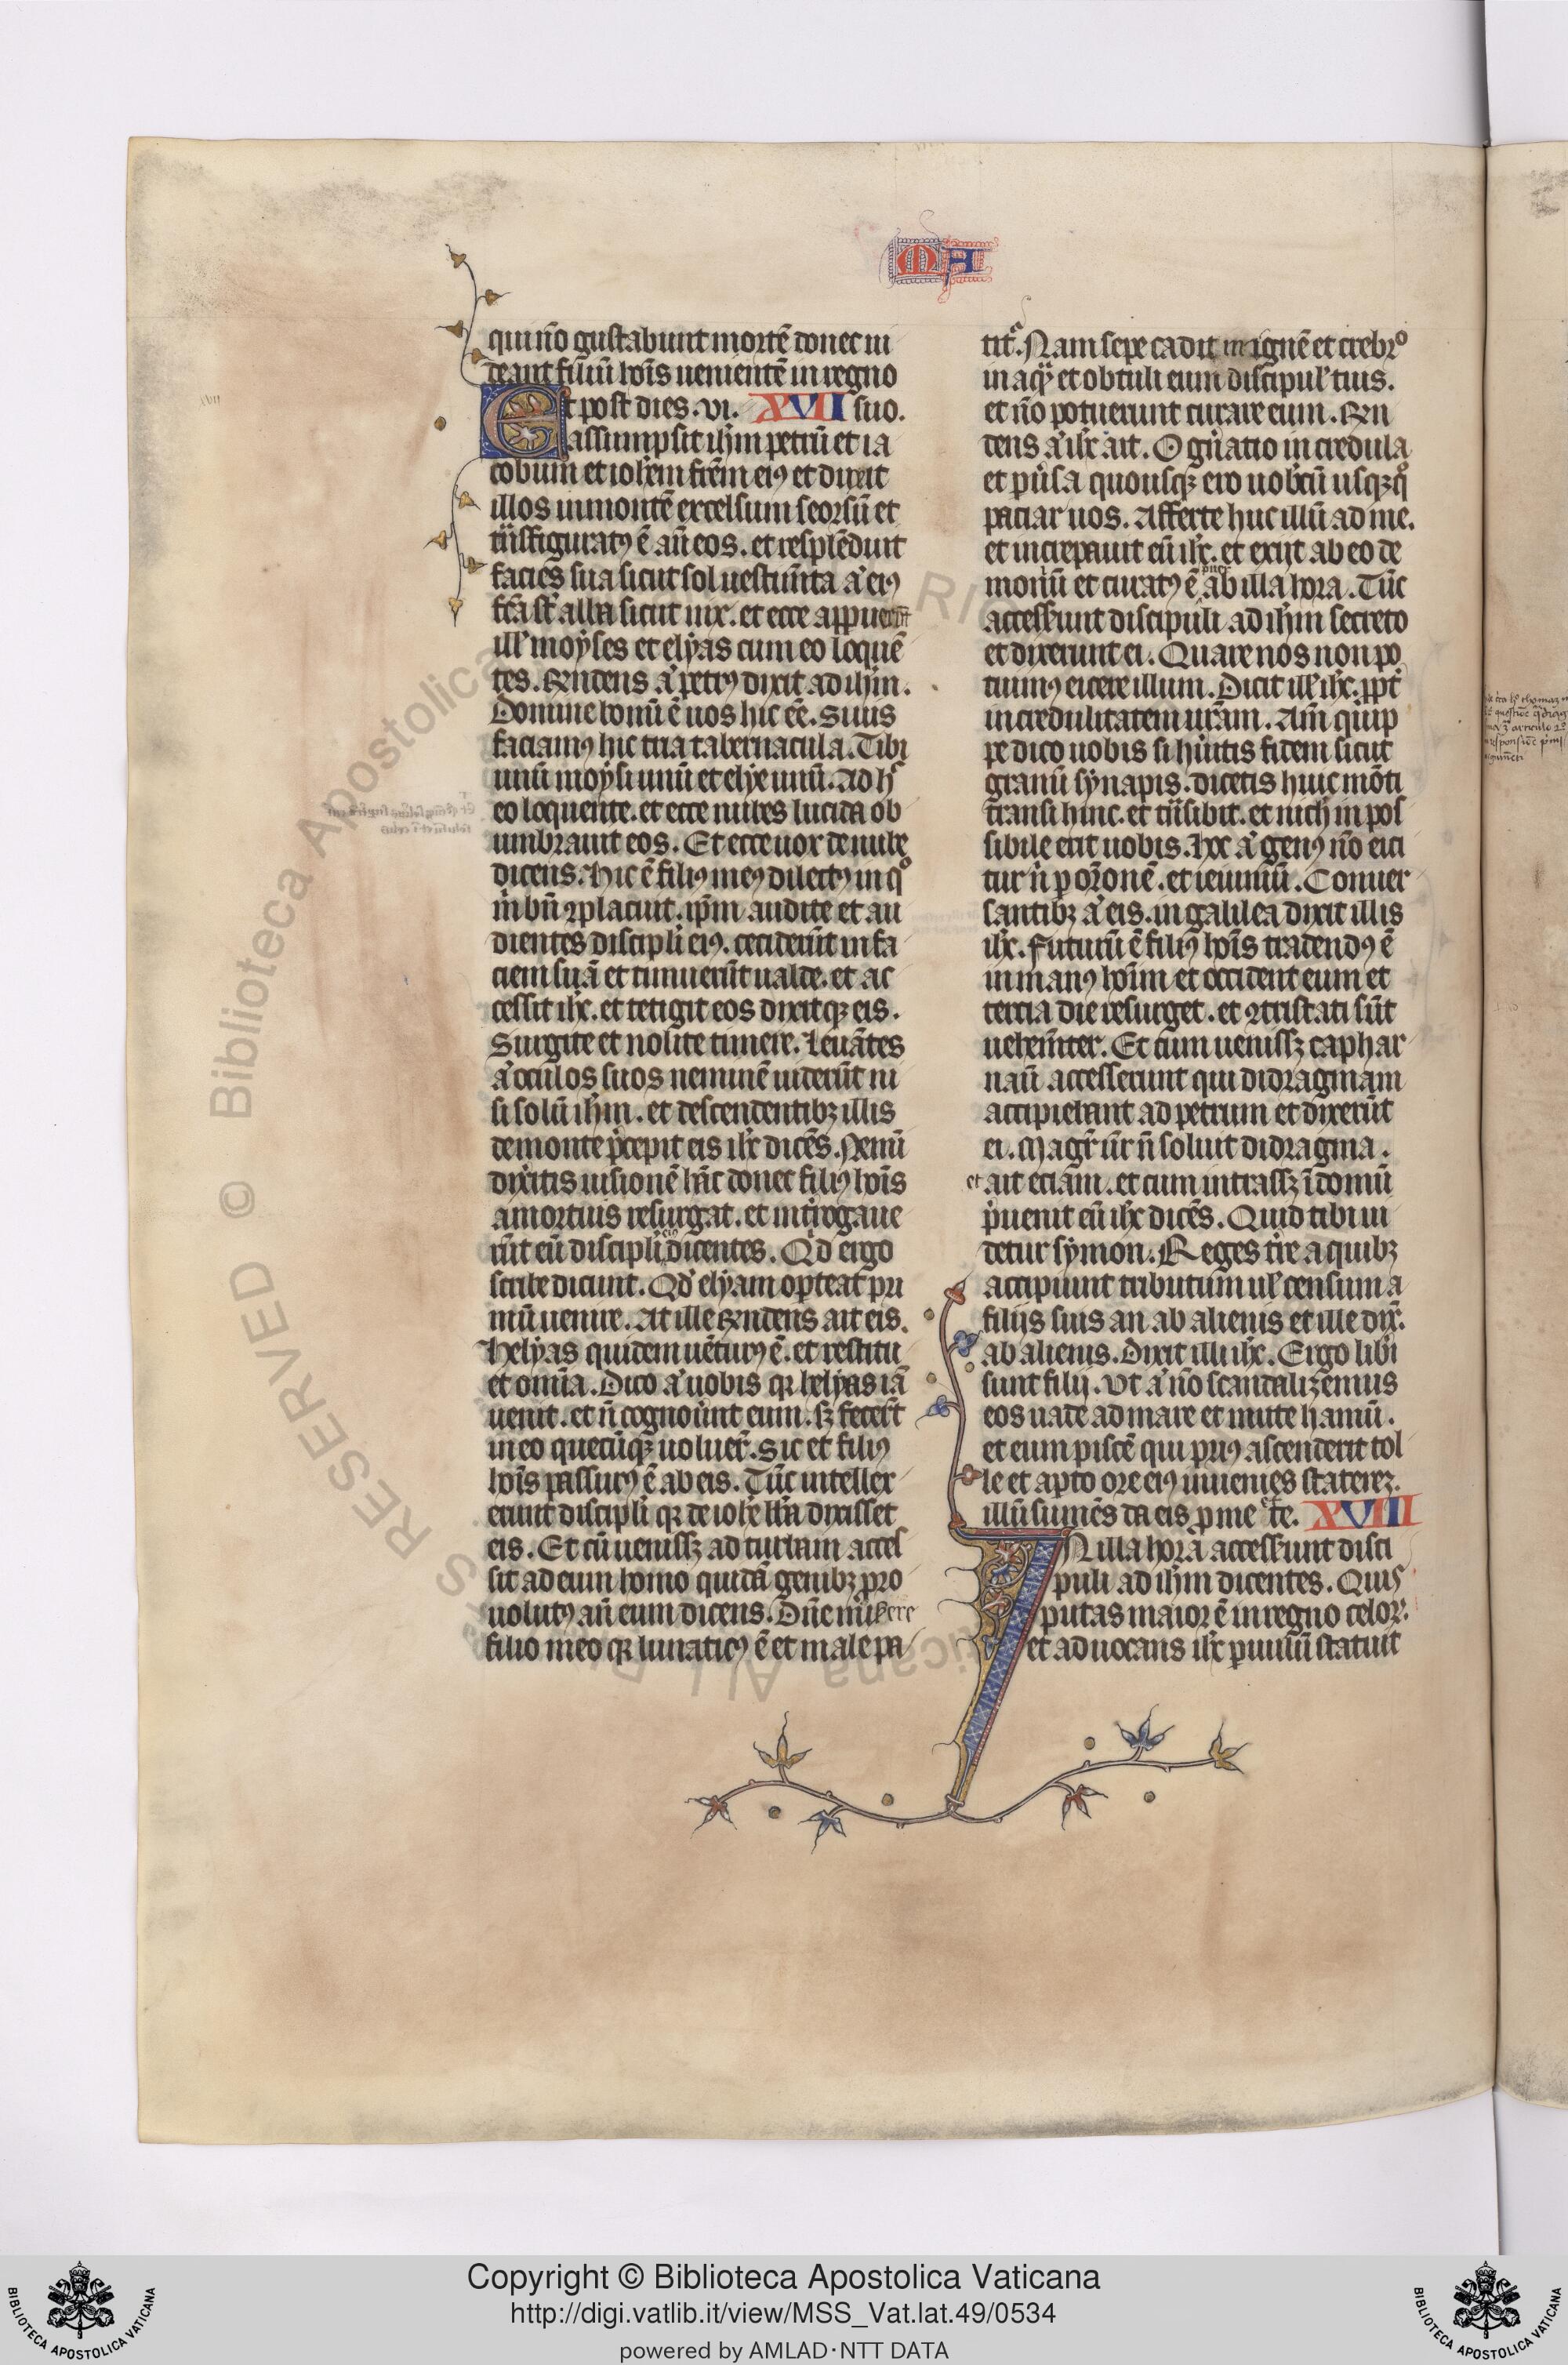 MA
qui nō gustabunt mortē donec ui
deant filiū hoīs uenientē in regno
Et post dies .vi. XVII suo.
assumpsit ihm petrū et ia
cobum et iohem frēm eiꝰ et duxit
illos in montē excelsum seorsū et
tnsfiguratꝰ ē an̄ eos. et resplēduit
facies sua sicut sol uestim̄ta a͛ eiꝰ
fc̄a st̄ alba sicut nix. et ecce appuerūt
ill' moyses et elyas cum eo loquē
tes. Rn̄dens a͛ petrꝰ dixit ad ihm.
Domine bonū ē nos hic ēē. Si uis
faciamꝰ hic tria tabernacula. Tibi
unū moysi unū et elye unū. Adh'
eo loquente. et ecce nubes lucida ob
umbrauit eos. Et ecce uox de nube
dicens. Hic ē filiꝰ meꝰ dilectꝰ in qͦ
m bn̄ ꝯplacuit. ip̄m audite et au
dientes discipli eiꝰ. ceciderūt in fa
ciem suā et timuerūt ualde. et ac
cessit ihc. et tetigit eos dixitqꝫ eis.
Surgite et nolite timere. Leuātes
a͛ oculos suos neminē uiderūt ni
si solū ihm. et descendentibꝫ illis
de monte p̄cepit eis ihc dicēs. Nemī
dix̄itis uisionē hāc donec filiꝰ hoīs
a mortuis resurgat. et int̄rogaue
rūt eū discipli eiꝰ dicentes. Qd̄ ergo
scribe dicunt. Qd̄ elyam oporteat pri
mū uenire. At ille rn̄dens ait eis.
Helyas quidem uēturꝰ ē. et restitu
et omīa. Dico a͛ uobis qꝛ helyas iā
uenit. et n̄ cognoūnt eum. sꝫ fecert̄
in eo quecūqꝫ uoluer̄. Sic et filiꝰ
hoīs passurꝰ ē ab eis. Tūc intellex
erunt discipli qꝛ de iohē bba dixisset
eis. Et cū uenissꝫ ad turbam acces
sit ad eum homo quidā genibꝫ pro
uolutꝰ an̄ eum dicens. Dn̄e misere
filio meo qꝛ lunaticꝰ ē et male pa
tit͛. Nam sepe cadit in ignē et crebrͦ
in aqͣ et obtuli eum discipul' tuis.
et nō potuerunt curare eum. Rn̄
dens a͛ ihc ait. O gn̄atio incredula
et pūsa quousqꝫ ero uobcū usqꝫqͦ
paciar uos. Afferte huc illū ad me.
et increpauit eū ihc. et exiit ab eo de
moniū et curatꝰ ē puer ab illa hora. Tūc
access̄unt discipuli ad ihm secreto
et dixerunt ei. Quare nos non po
tuimꝰ eicere illum. Dicit ill' ihc. ppt̄
incredulitatem ur̄am. Am̄ quip
pe dico uobis si hūitis fidem sicut
granū synapis. dicetis huic mōti
transi hinc. et tn̄sibit. et nich inpos
sibile erit uobis. Hoc a͛ genꝰ nō eici
tur n̄ p orōnē. et ieiuniū. Conuer
santibꝫ a͛ eis. in galilea dixit illis
ihc. Futurū ē filiꝰ hoīs tradendꝰ ē
in manꝰ hoīm et occident eum et
tercia die resurget. et ꝯtristati sūt
uehem̄ter. Et cum uenissꝫ caphar
naū accesserunt qui didragmam
accipiebant ad petrum et dixerūt
ei. Magr̄ ur̄ n̄ soluit didragma.
et ait eciam. et cum intrassꝫ ī domū
p̄uenit eū ihc dicēs. Quid tibi ui
detur symon. Reges tr̄e a quibꝫ
accipiunt tributum ul' censum a
filiis suis an ab alienis et ille dix̄.
ab alienis. Dixit illi ihc. Ergo libi
sunt filii. Vt a͛ nō scandalizemus
eos uade ad mare et mitte hamū.
et eum piscē qui priꝰ ascenderit tol
le et apto ore eiꝰ inuenies staterez.
illū sumēs da eis p me et te. XVIII
IN illa hora access̄unt disci
puli ad ihm dicentes. Quis
putas maior ē in regno celoꝝ.
et aduocans ihc puulū statuit
© Biblioteca Apostolica Vaticana ALL RIGHTS RESERVED
Copyright © Biblioteca Apostolica Vaticana
http://digi.vatlib.it/view/MSS_Vat.lat.49/0534
powered by AMLAD·NTT DATA
BIBLIOTECA APOSTOLICA VATICANA
BIBLIOTECA APOSTOLICA VATICANA